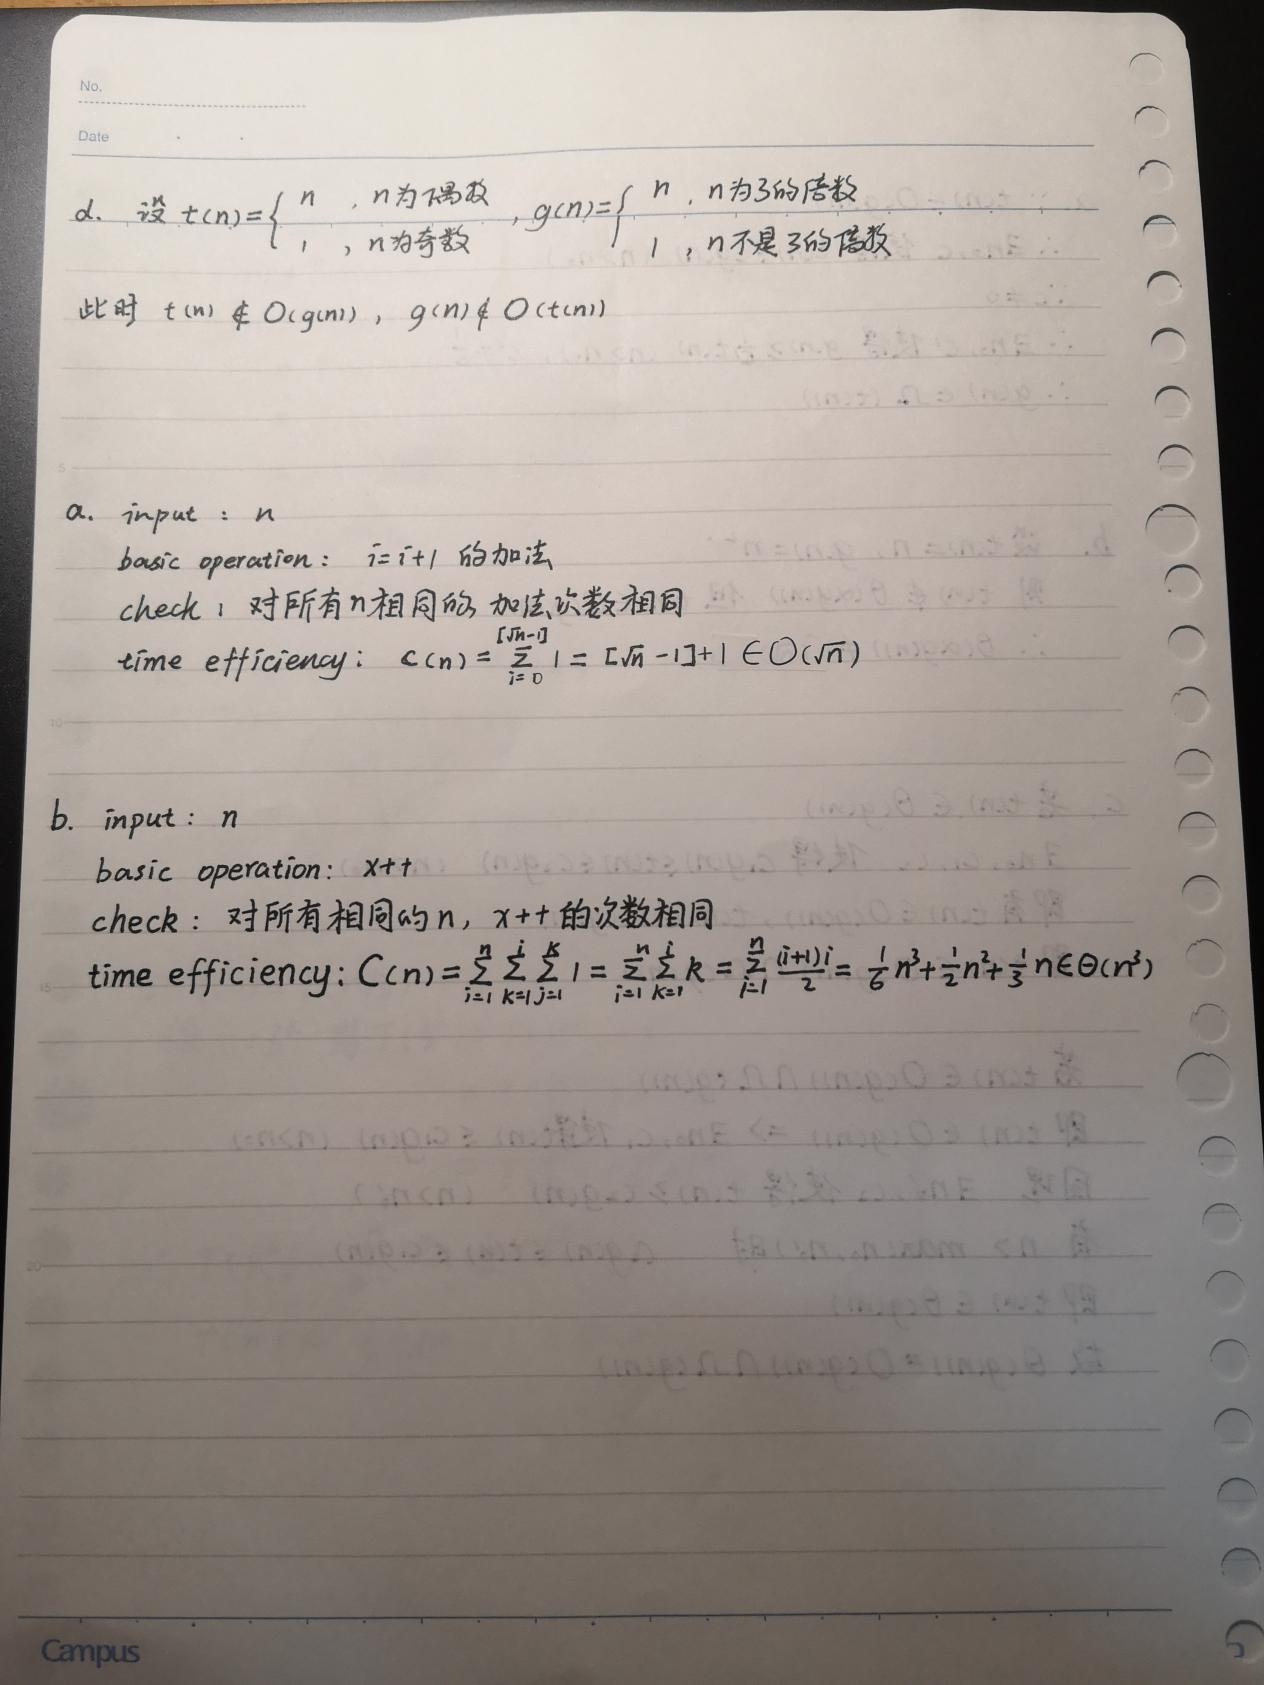 No.
Date
d. 设 t(n)={ n , n为偶数 , g(n)={ n , n为3的倍数
1 , n为奇数 1 , n不是3的倍数
此时 t(n) ∉ O(g(n)) , g(n) ∉ O(t(n))
5
a. input : n
basic operation: i=i+1 的加法
check : 对所有n相同的, 加法次数相同
time efficiency: C(n) = \sum_{i=0}^{[√n-1]} 1 = [√n -1]+1 ∈ Θ(√n)
10
b. input: n
basic operation: x++
check: 对所有相同的n, x++的次数相同
time efficiency: C(n) = \sum_{i=1}^{n} \sum_{k=1}^{i} \sum_{j=1}^{k} 1 = \sum_{i=1}^{n} \sum_{k=1}^{i} k = \sum_{i=1}^{n} \frac{(i+1)i}{2} = \frac{1}{6}n³+\frac{1}{2}n²+\frac{1}{3}n ∈ Θ(n³)
15
20
Campus